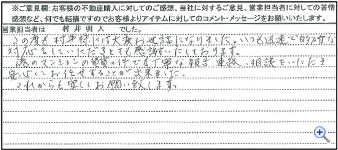 ※ご意見欄:お客様の不動産購入に対してのご感想、当社に対するご意見、営業担当者に対しての苦情
感想など、何でも結構ですのでお客様よりアイテムに対してのコメント・メッセージをお願いいたします。
営業担当者は 村井 明人 でした。
この度も村井様には大変お世話になりました。いつも迅速で的確な
対応をしていただきとても感謝いたしております。
のマンションの の件でも丁寧な 連絡、相談をいただき
安心してお任せすることが出来ました。
これからも宜しくお願い致します。